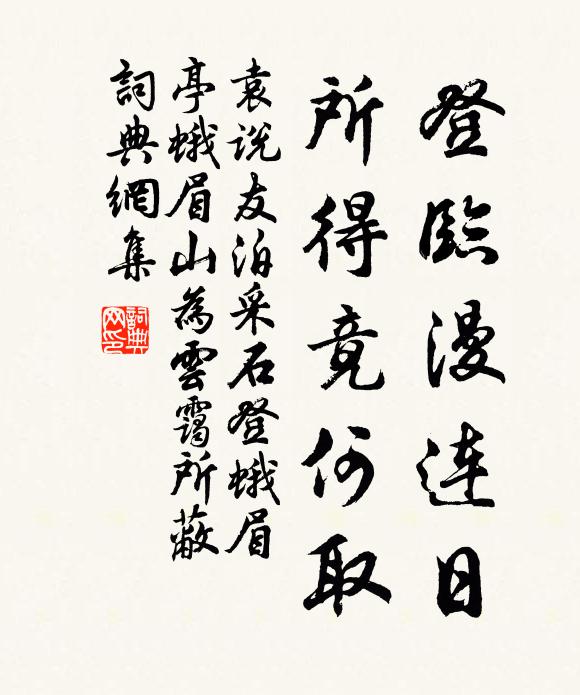 登臨漫連日
所得竟何取
袁説友泊采石登蛾眉
亭蛾眉山為雲靄所蔽
詞典網集
詞典
网印